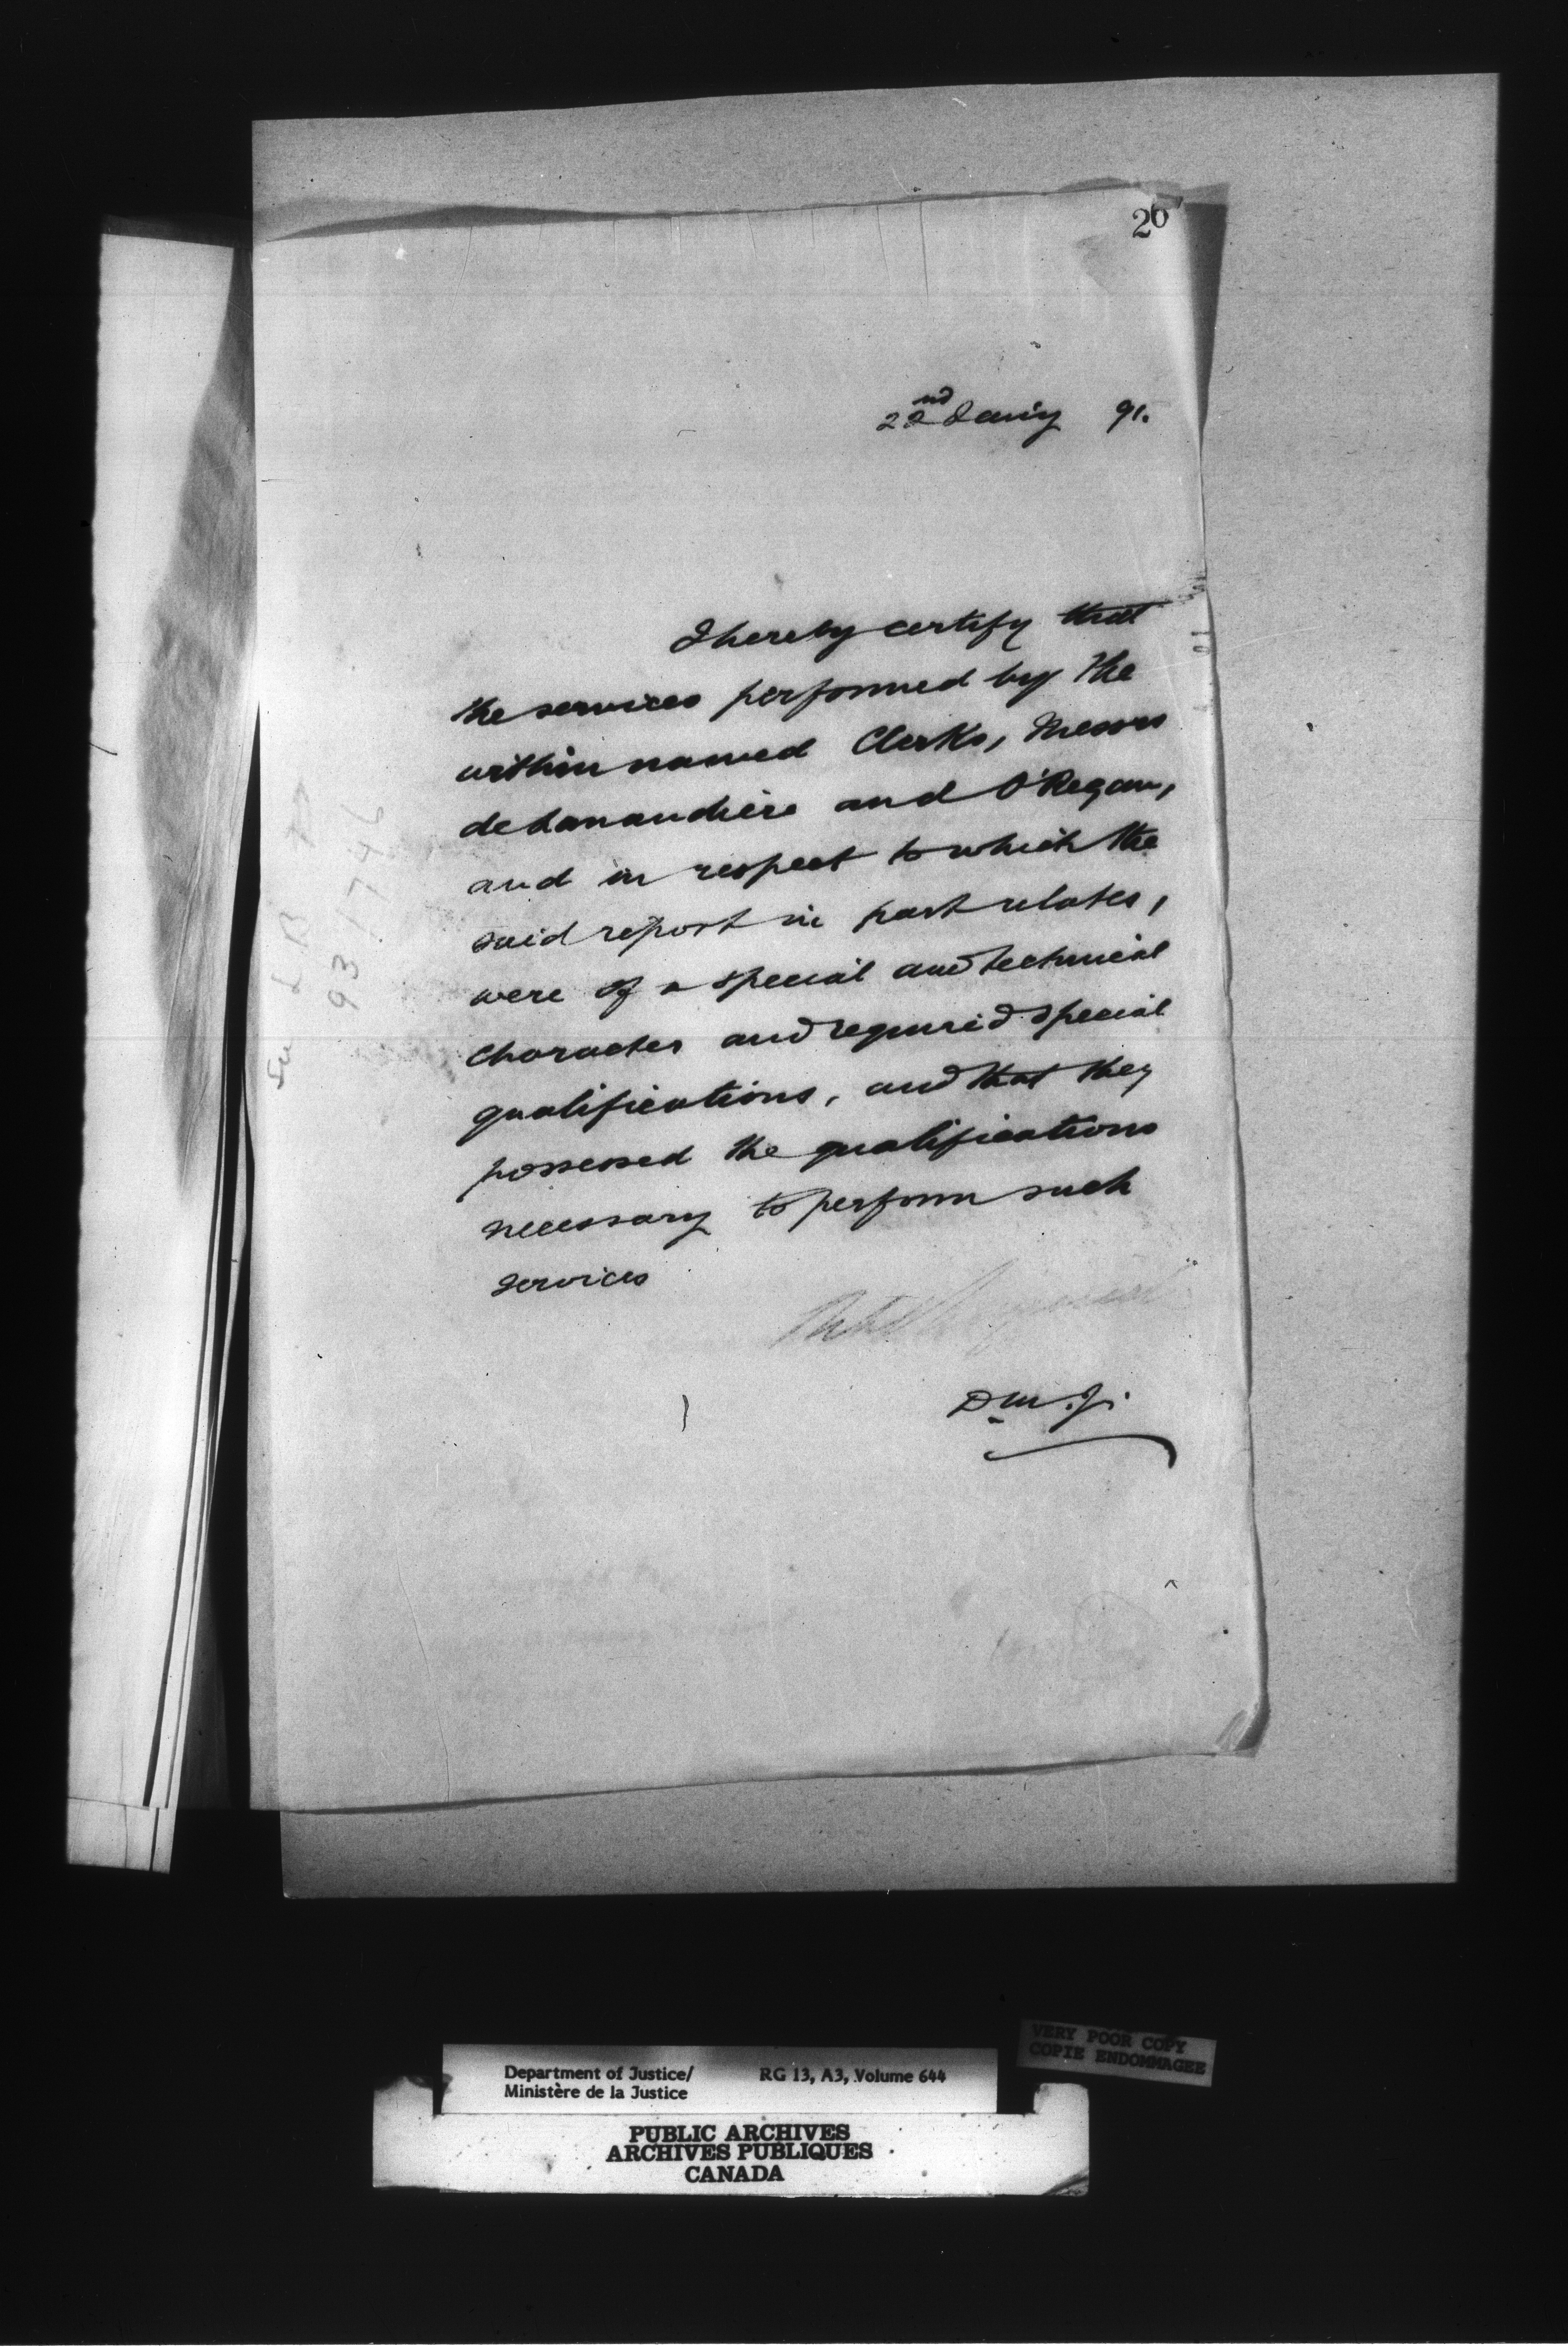 20
22nd Jany 91.
I hereby certify that
the services performed by the
within named Clerks, Messrs
de Lanaudière and O'Regan,
and in respect to which the
said report in part relates,
were of a special and technical
character and required special
qualifications, and that they
possessed the qualifications
necessary to perform such
services
D.M.J.
93 1746
VERY POOR COPY
COPIE ENDOMMAGEE
Department of Justice/ RG 13, A3, Volume 644
Ministère de la Justice
PUBLIC ARCHIVES
ARCHIVES PUBLIQUES
CANADA